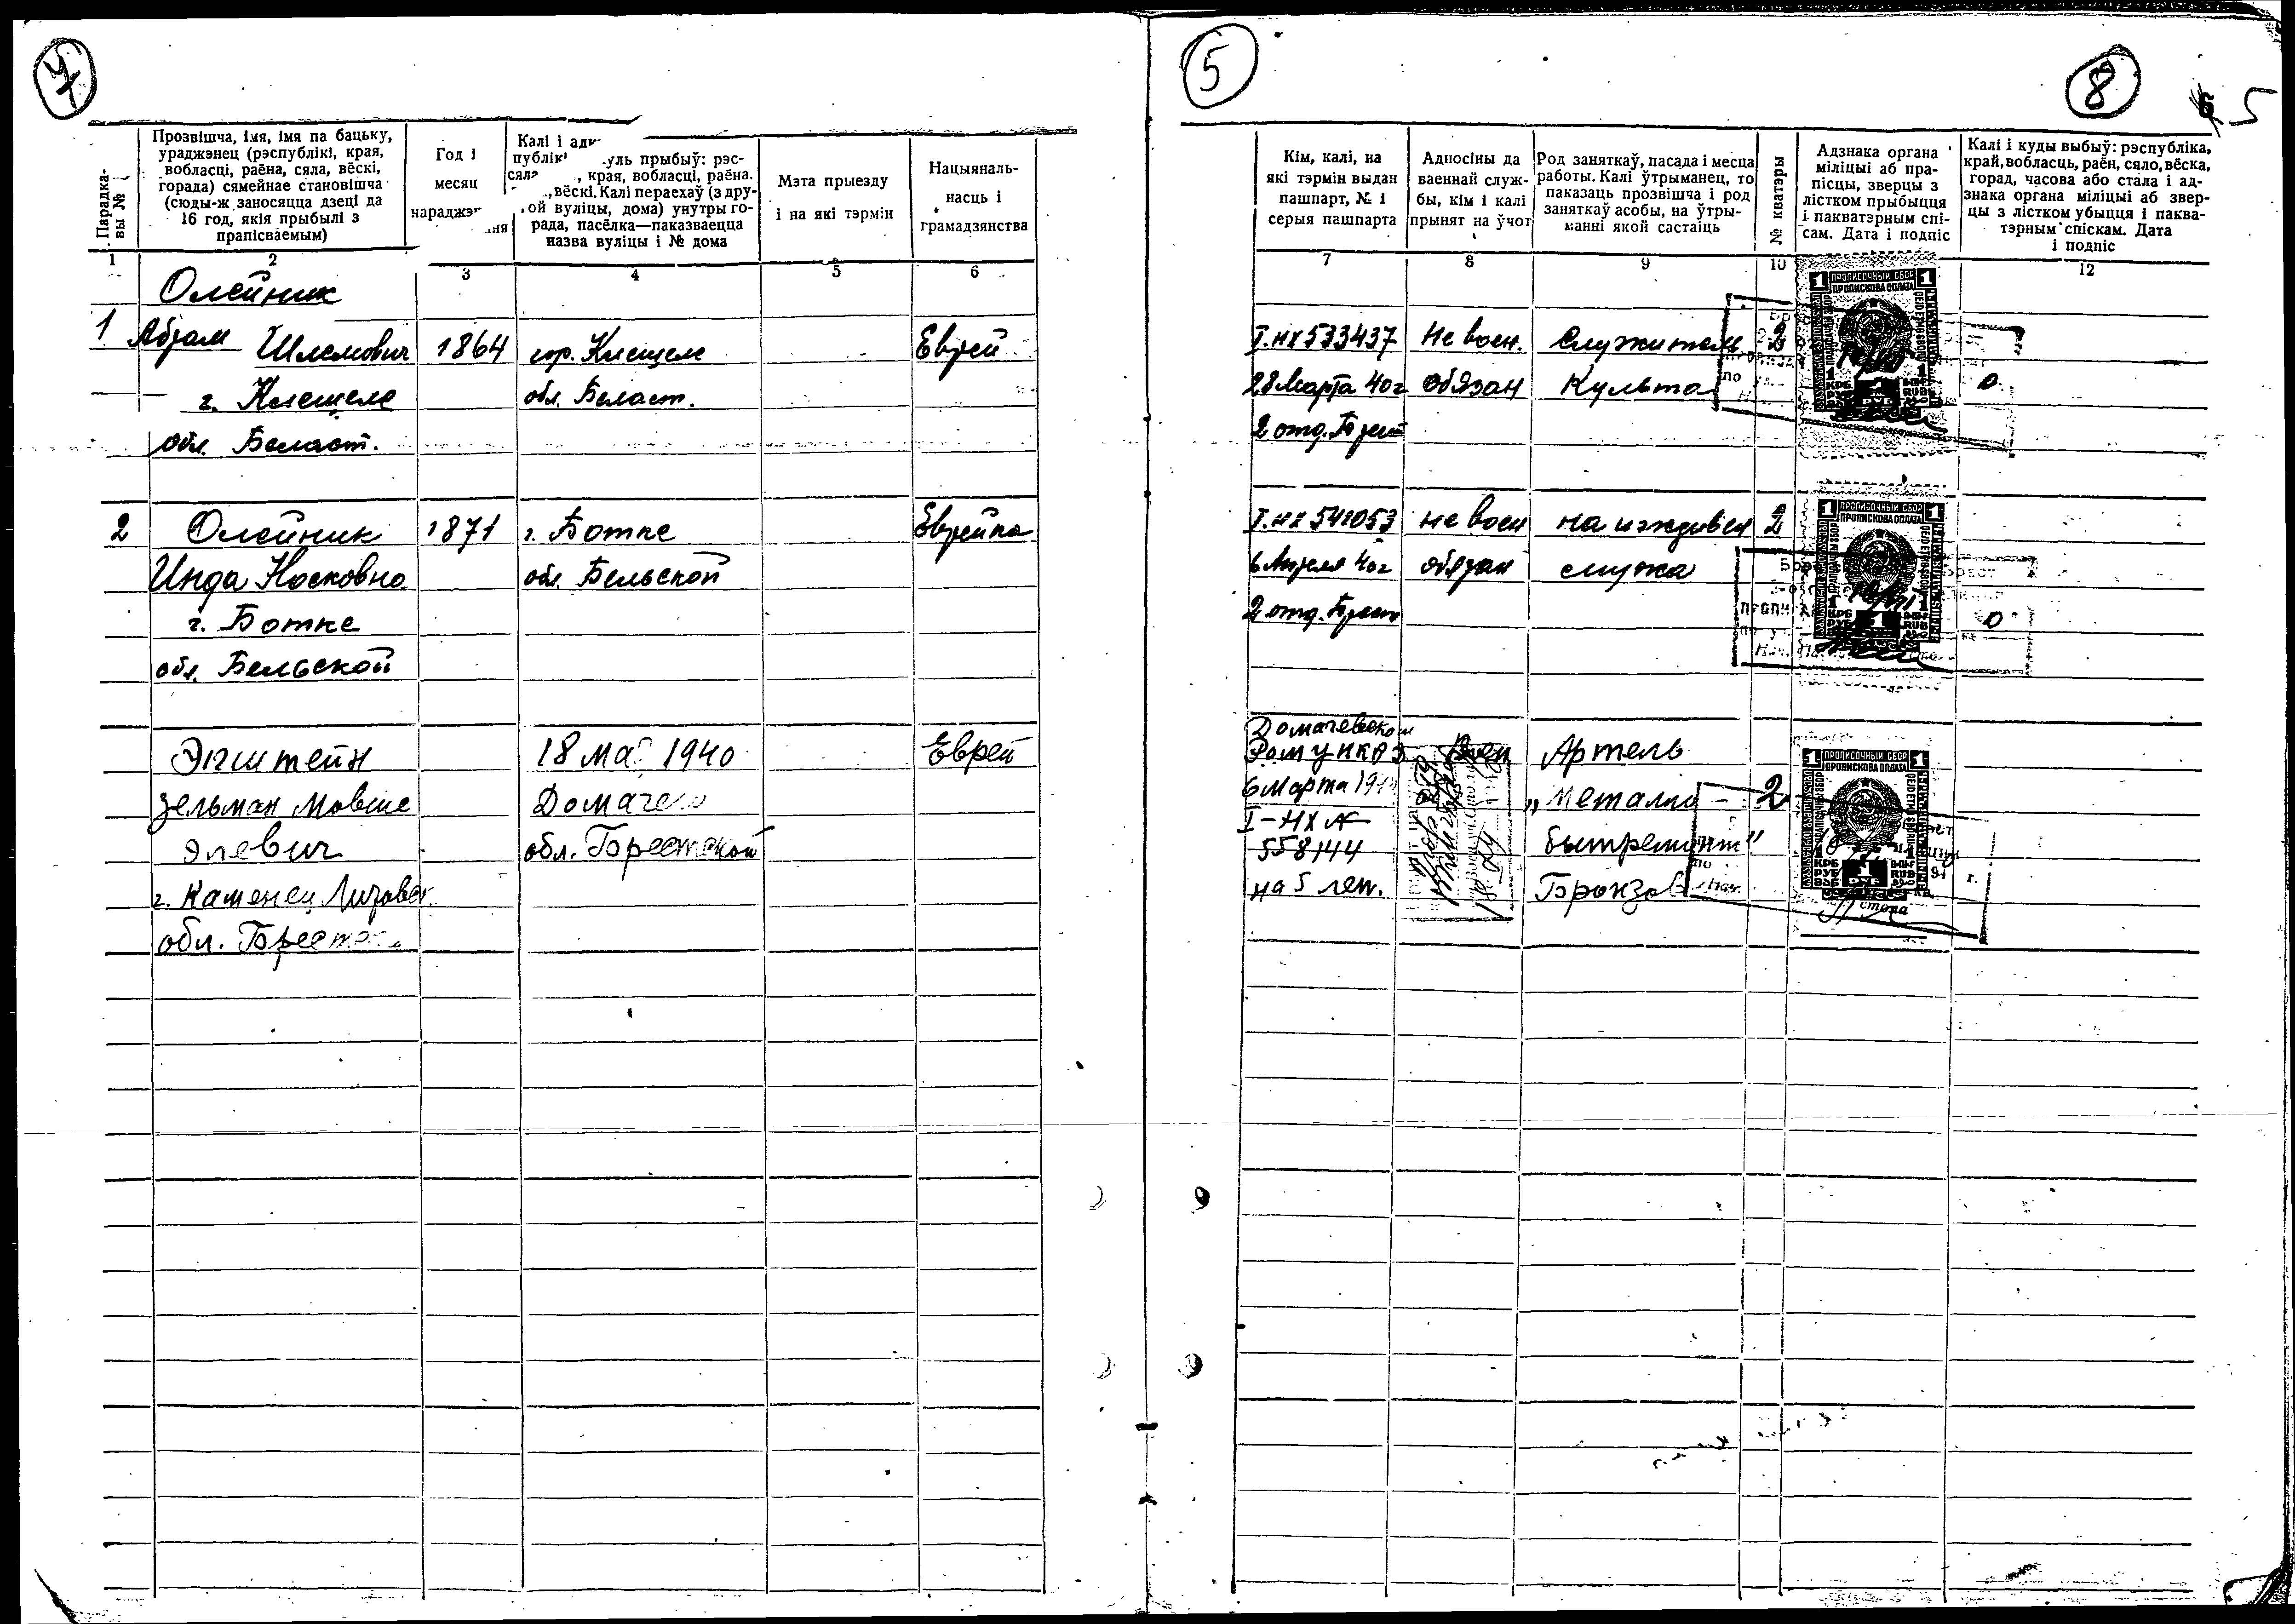 7
5
8
5
Парадка-
вы №
Прозвішча, імя, імя па бацьку,
ураджэнец (рэспублікі, края,
вобласці, раёна, сяла, вёскі,
горада) сямейнае становішча
(сюды-ж заносяцца дзеці да
16 год, якія прыбылі з
прапісваемым)
Год і
месяц
нараджэння
Калі і
публік уль прыбыў: рэс-
, края, вобласці, раёна.
, вёскі. Калі пераехаў (з дру-
ой вуліцы, дома) унутры го-
рада, пасёлка—паказваецца
назва вуліцы і № дома
Мэта прыезду
і на які тэрмін
Нацыяналь-
насць і
грамадзянства
Кім, калі, на
які тэрмін выдан
пашпарт, № і
серыя пашпарта
Адносіны да
ваеннай служ-
бы, кім і калі
прынят на ўчот
Род заняткаў, пасада і месца
работы. Калі ўтрыманец, то
паказаць прозвішча і род
заняткаў асобы, на ўтры-
манні якой састаіць
№ кватэры
Адзнака органа
міліцыі аб пра-
пісцы, зверцы з
лістком прыбыцця
і пакватэрным спі-
сам. Дата і подпіс
Калі і куды выбыў: рэспубліка,
край, вобласць, раён, сяло, вёска,
горад, часова або стала і ад-
знака органа міліцыі аб звер-
цы з лістком убыцця і паква-
тэрным спіскам. Дата
і подпіс
1 2 3 4 5 6 7 8 9 10 12
Олейник
1 Абрам Шлемович 1864 гор. Клещеле Еврей I. НХ 533437 Не воен. Служитель 2
г. Клещеле обл. Беласт. 28 Марта 40 г обязан Культа 0
обл. Беласт. 2 отд. Брест
2 Олейник 1871 г. Ботке Еврейка I. НХ 541053 не воен на иждивен 2
Инда Носковна обл. Бельской 6 Апреля 40 г обязан служа
г. Ботке 2 отд. Брест 0
обл. Бельской
Домачевском
Эпштейн 18 мая 1940 Еврей РОМ УНКВД Артель
зельман Мовше Домачево 6 Марта „Металло- 2
Элевич обл. Брестской I-НХ № бытремонт"
558144
г. Каменец Литовск на 5 лет.
обл. Брестск
ПРОПИСОЧНЫЙ СБОР
ПРОПИСКОВА ОПЛАТА
1 КРБ РУБ RUB
ПРОПИСОЧНЫЙ СБОР
ПРОПИСКОВА ОПЛАТА
1 КРБ РУБ RUB
ПРОПИСОЧНЫЙ СБОР
ПРОПИСКОВА ОПЛАТА
1 КРБ РУБ RUB